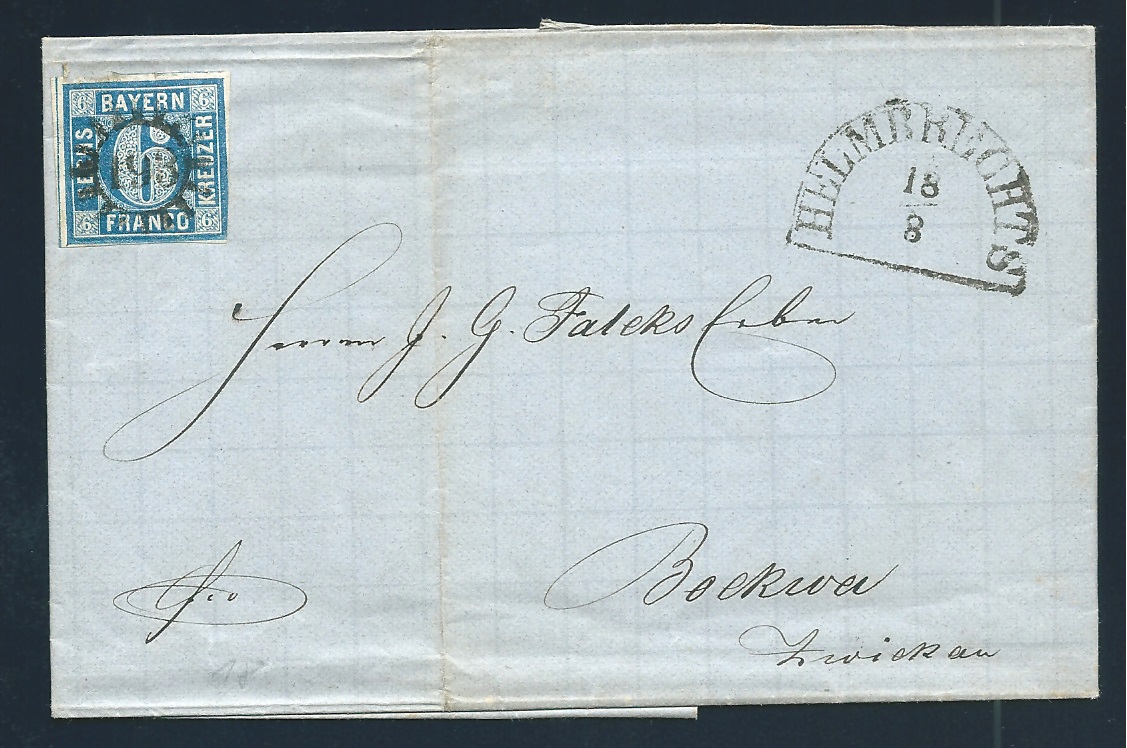 6 BAYERN 6
SECHS 6 KREUZER
6 FRANCO 6
HELMBRECHTS
18
8
Herrn J. G. Falcks Erben
fro
Bockwa
Zwickau